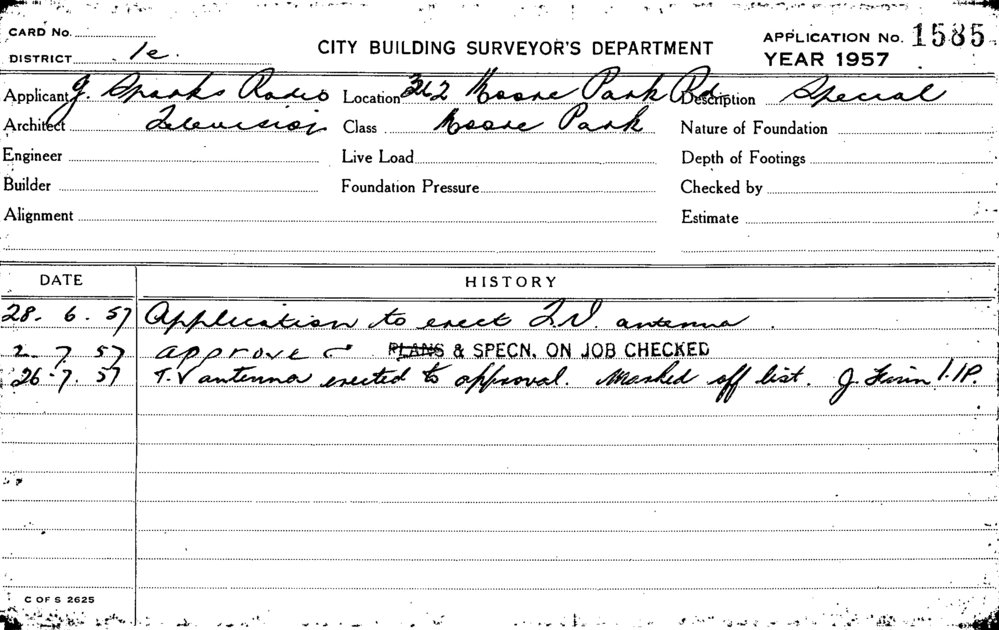 CARD No.
DISTRICT 1c.
CITY BUILDING SURVEYOR'S DEPARTMENT
APPLICATION No. 1585
YEAR 1957
Applicant J. Sparks Radio Location 362 Moore Park Rd Description Special
Architect Television Class Moore Park Nature of Foundation
Engineer Live Load Depth of Footings
Builder Foundation Pressure Checked by
Alignment Estimate
DATE HISTORY
28. 6. 57 Application to erect T.V. antenna.
2. 7. 57 approve PLANS & SPECN. ON JOB CHECKED
26. 7. 57 T.V antenna erected to approval. Marked off list. J.
C OF S 2625